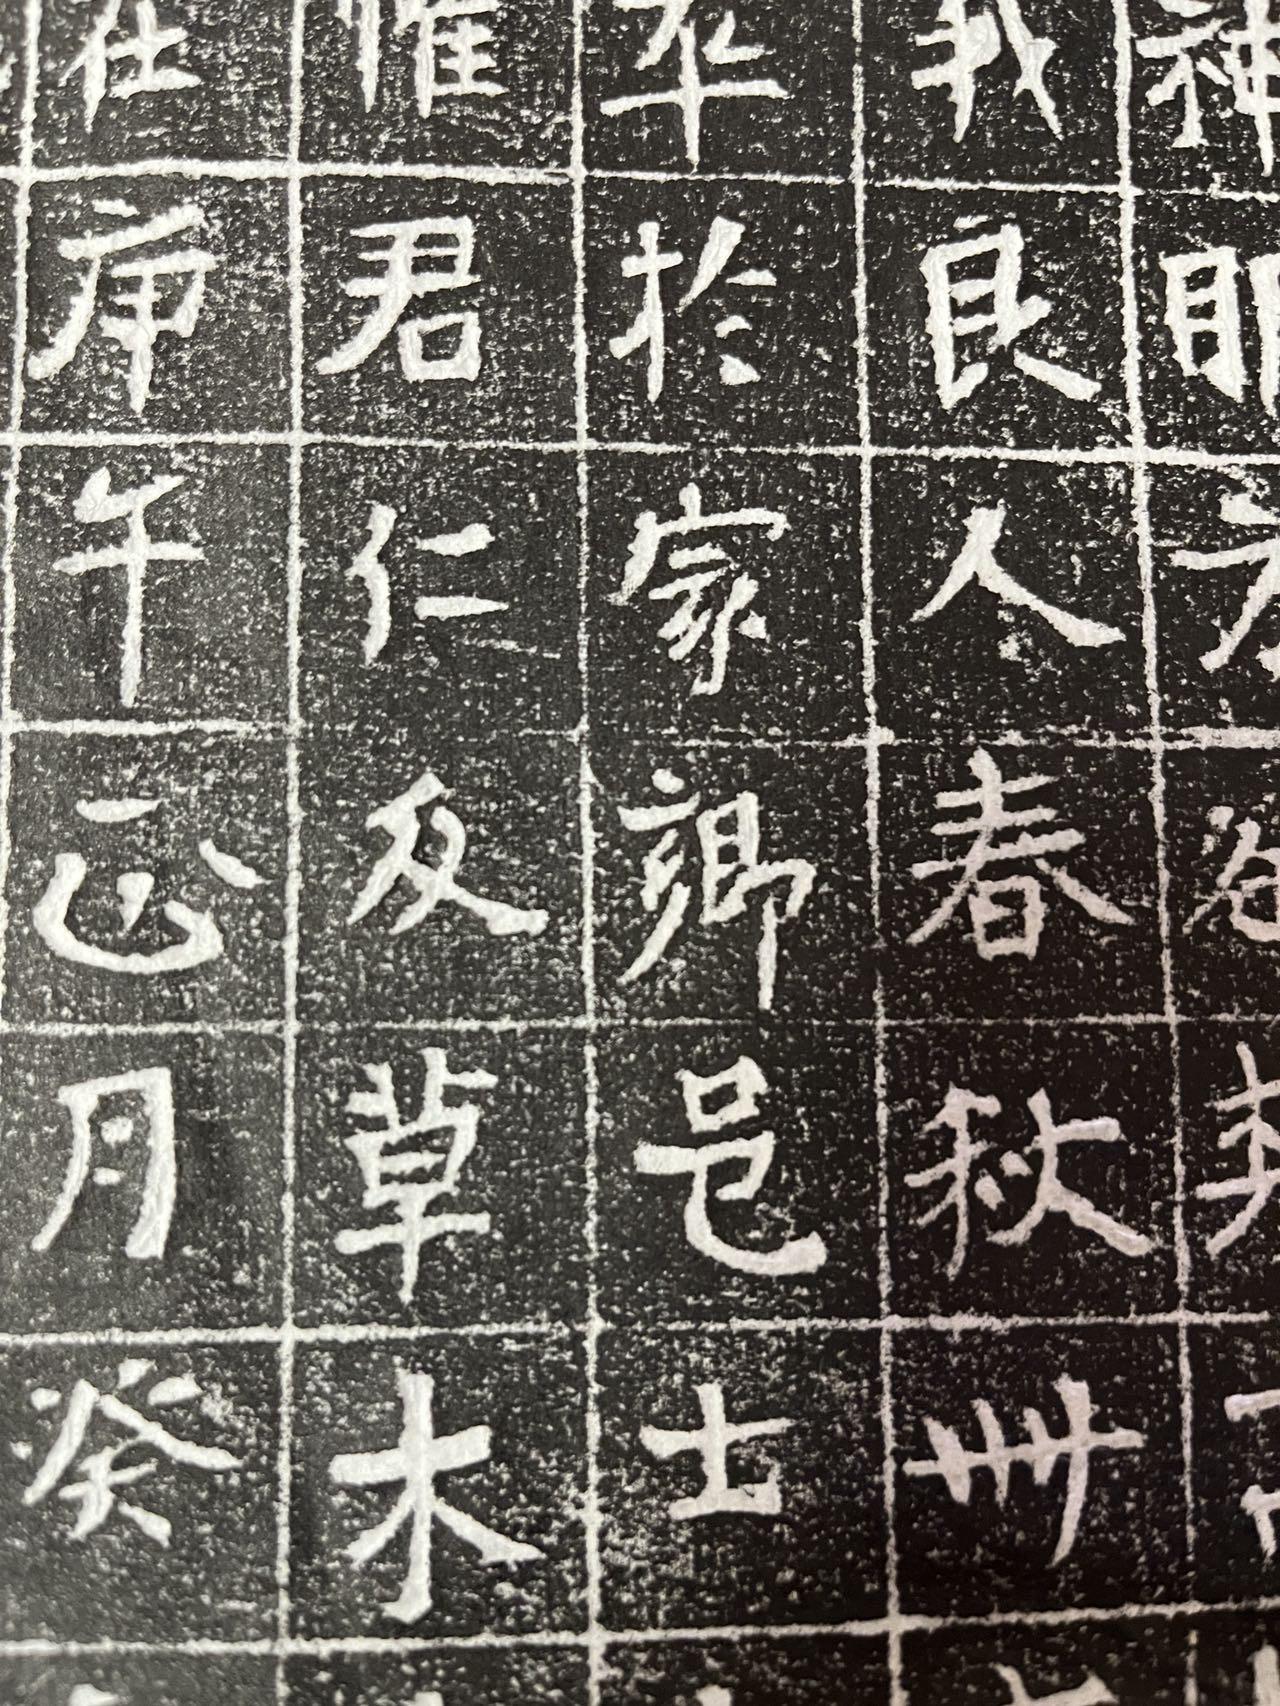 神
我良人春秋卌
卒於家鄉邑士
惟君仁及草木
在庚午正月癸